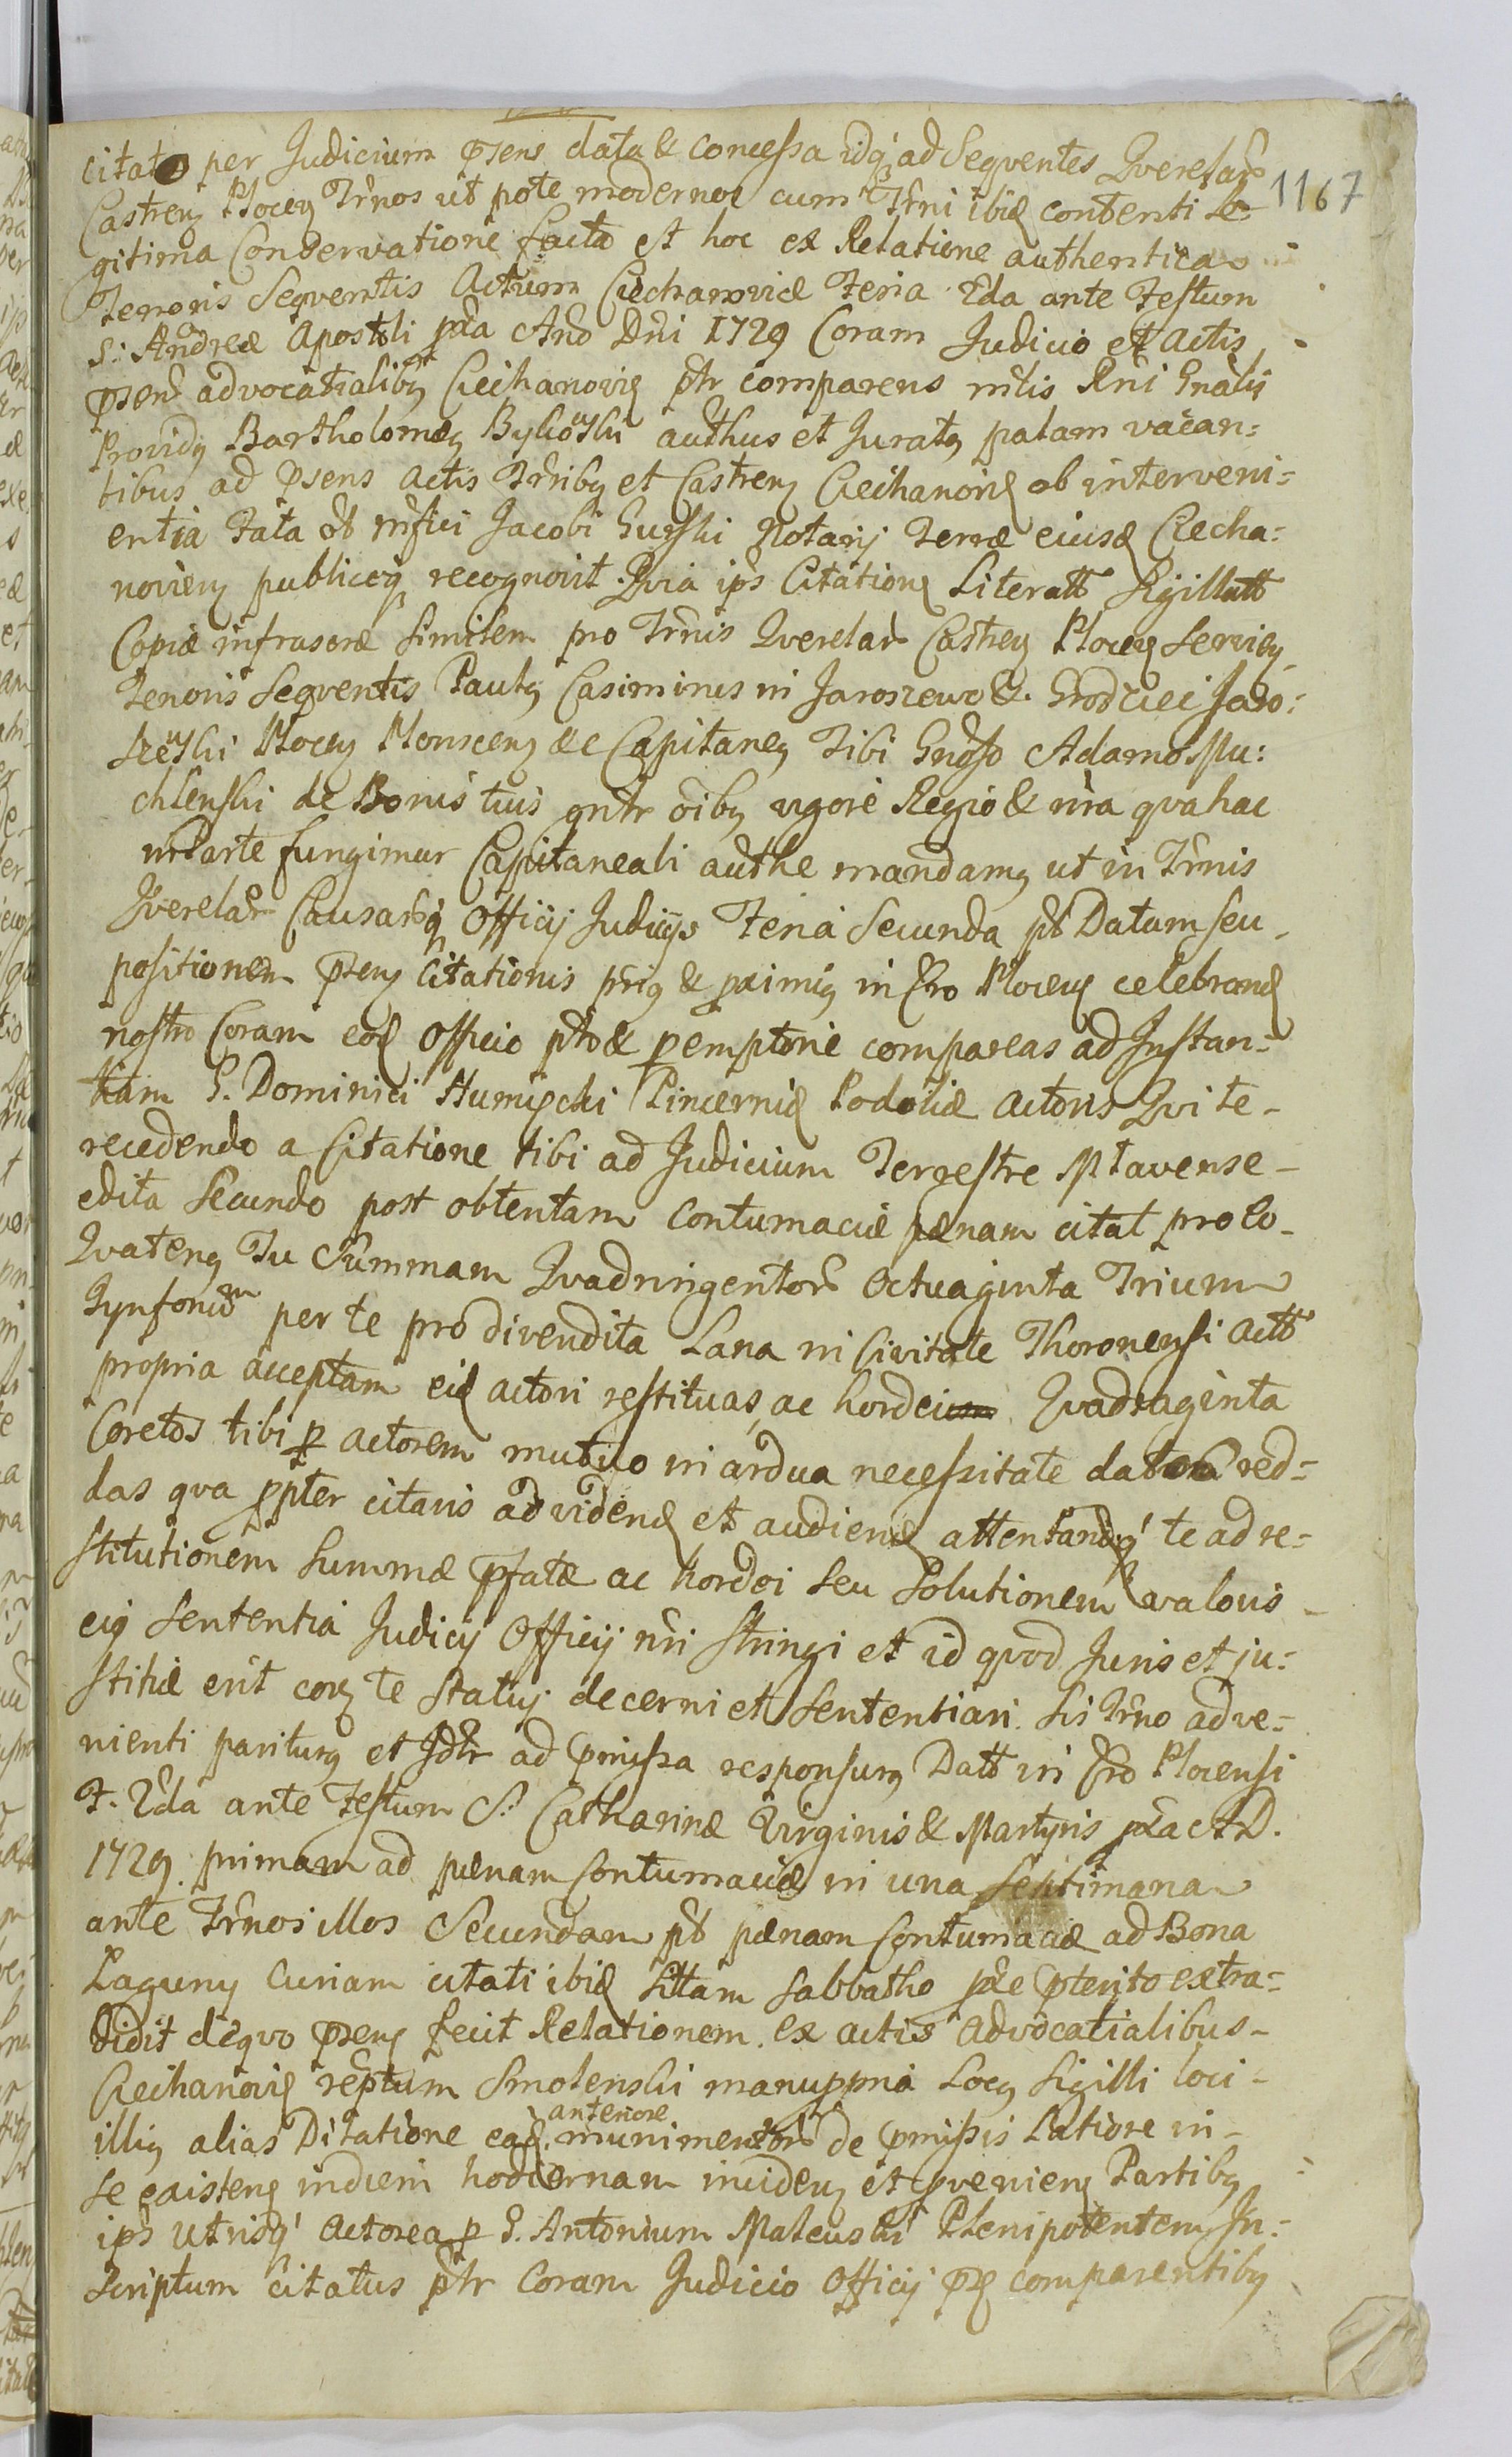 1167
citato per Judicium pñsens data & concessa idq ad Seqventes Qverelar
Castren Plocen Trnos ut pote modernos cum Trni ibid contenti le-
gitima Conservatione facta et hoc ex Relatione authentica
Tenoris Seqventis Actum Ciechanoviæ Feria 2da ante Festum
S: Andreæ Apostoli pxa Ano Dni 1729 Coram Judicio et Actis
pñsen advocatialibq Ciechanovien ptr comparens mlis Rni Gnalis
Providq Bartholomæq Bylioski authus et Juratq palam vacan:
tibus ad pñsens Actis Trribq et Castren Ciechanovien ob interveni-
entia Fata ob mfici Jacobi Gurski Notarij Terræ eiusd Ciecha:
novien publiceq recognovit. Qvia ips Citatione Literatt Sigillatt
Copiæ infrascræ similem pro Trnis Qverelar Castren Plocen servien
Tenoris Seqventis Paulq Casimirus in Jaroszewo & Grodziec Jaro:
szewski Plocen Plonscen &c Capitaneq Tibi Gnoso Adamo Mu:
chlenski de Bonis tuis gntr oibq vigore Regio & nra qva hac
in Parte fungimur Capitaneali authe mandamq ut in Trnis
Qverelar Causarq Officij Judicijs Feria Secunda pt Datam seu
positionem pñsen Citationis priq & pximiq in Cro Plocen celebrand
nostro Coram eod Officio pto & pemptorie compareas ad Instan:
tiam G. Dominici Humięcki Pincernid Podoliæ Actoris Qvi te-
recedendo a Citatione tibi ad Judicium Terrestre Mlavense-
edita Secundo post obtentam contumaciæ pænam citat pro eo-
Qvatenq Tu Summam Qvadringentor Octuaginta Trium
Tynfonum per te pro divendita Lana in Civitate Thoronensi actt
propria acceptam eid actori restituas, ac hordei Qvadraginta
Coretos tibi p actorem mutuo in ardua necessitate datos red:
das qva ppter citaris ad videnð et audienð attentandq te ad re-
stitutionem Summæ pfatæ ac hordei seu Solutionem valoris-
eiq Sententia Judicij Officij nri Stringi et id qvod Juris et ju:
stitiæ erit corq te Statuj decerni et Sententiari. Sis Trno adve-
nienti pariturq et Jdtr ad pmissa responsurq Datt in Cro Plocensi
F. 2da ante Festum S: Catharinæ Virginis & Martyris pxa A.D.
1729. primam ad pænam Contumaciæ in una Septimana
ante Trnos illos Secundam pt pænam Contumaciæ ad Bona
Laguny Curiam citati ibid Sittam Sabbatho pxe pterito extra-
didit deqvo pñsen fecit Relationem. ex actis Advocatialibus-
Ciechanovien reptum Smolenski manuppria Locq Sigilli loci-
illiq alias Dilatione ead. anteriore munimentor de pmissis Latiore in-
se existenq indiem hodiernam incidenq et pvenienq Partibq
ips utrisq Actorea p G. Antonium Mateuski Plenipotentem In-
scriptum citatus ptr Coram Judicio Officij pñ comparentibq